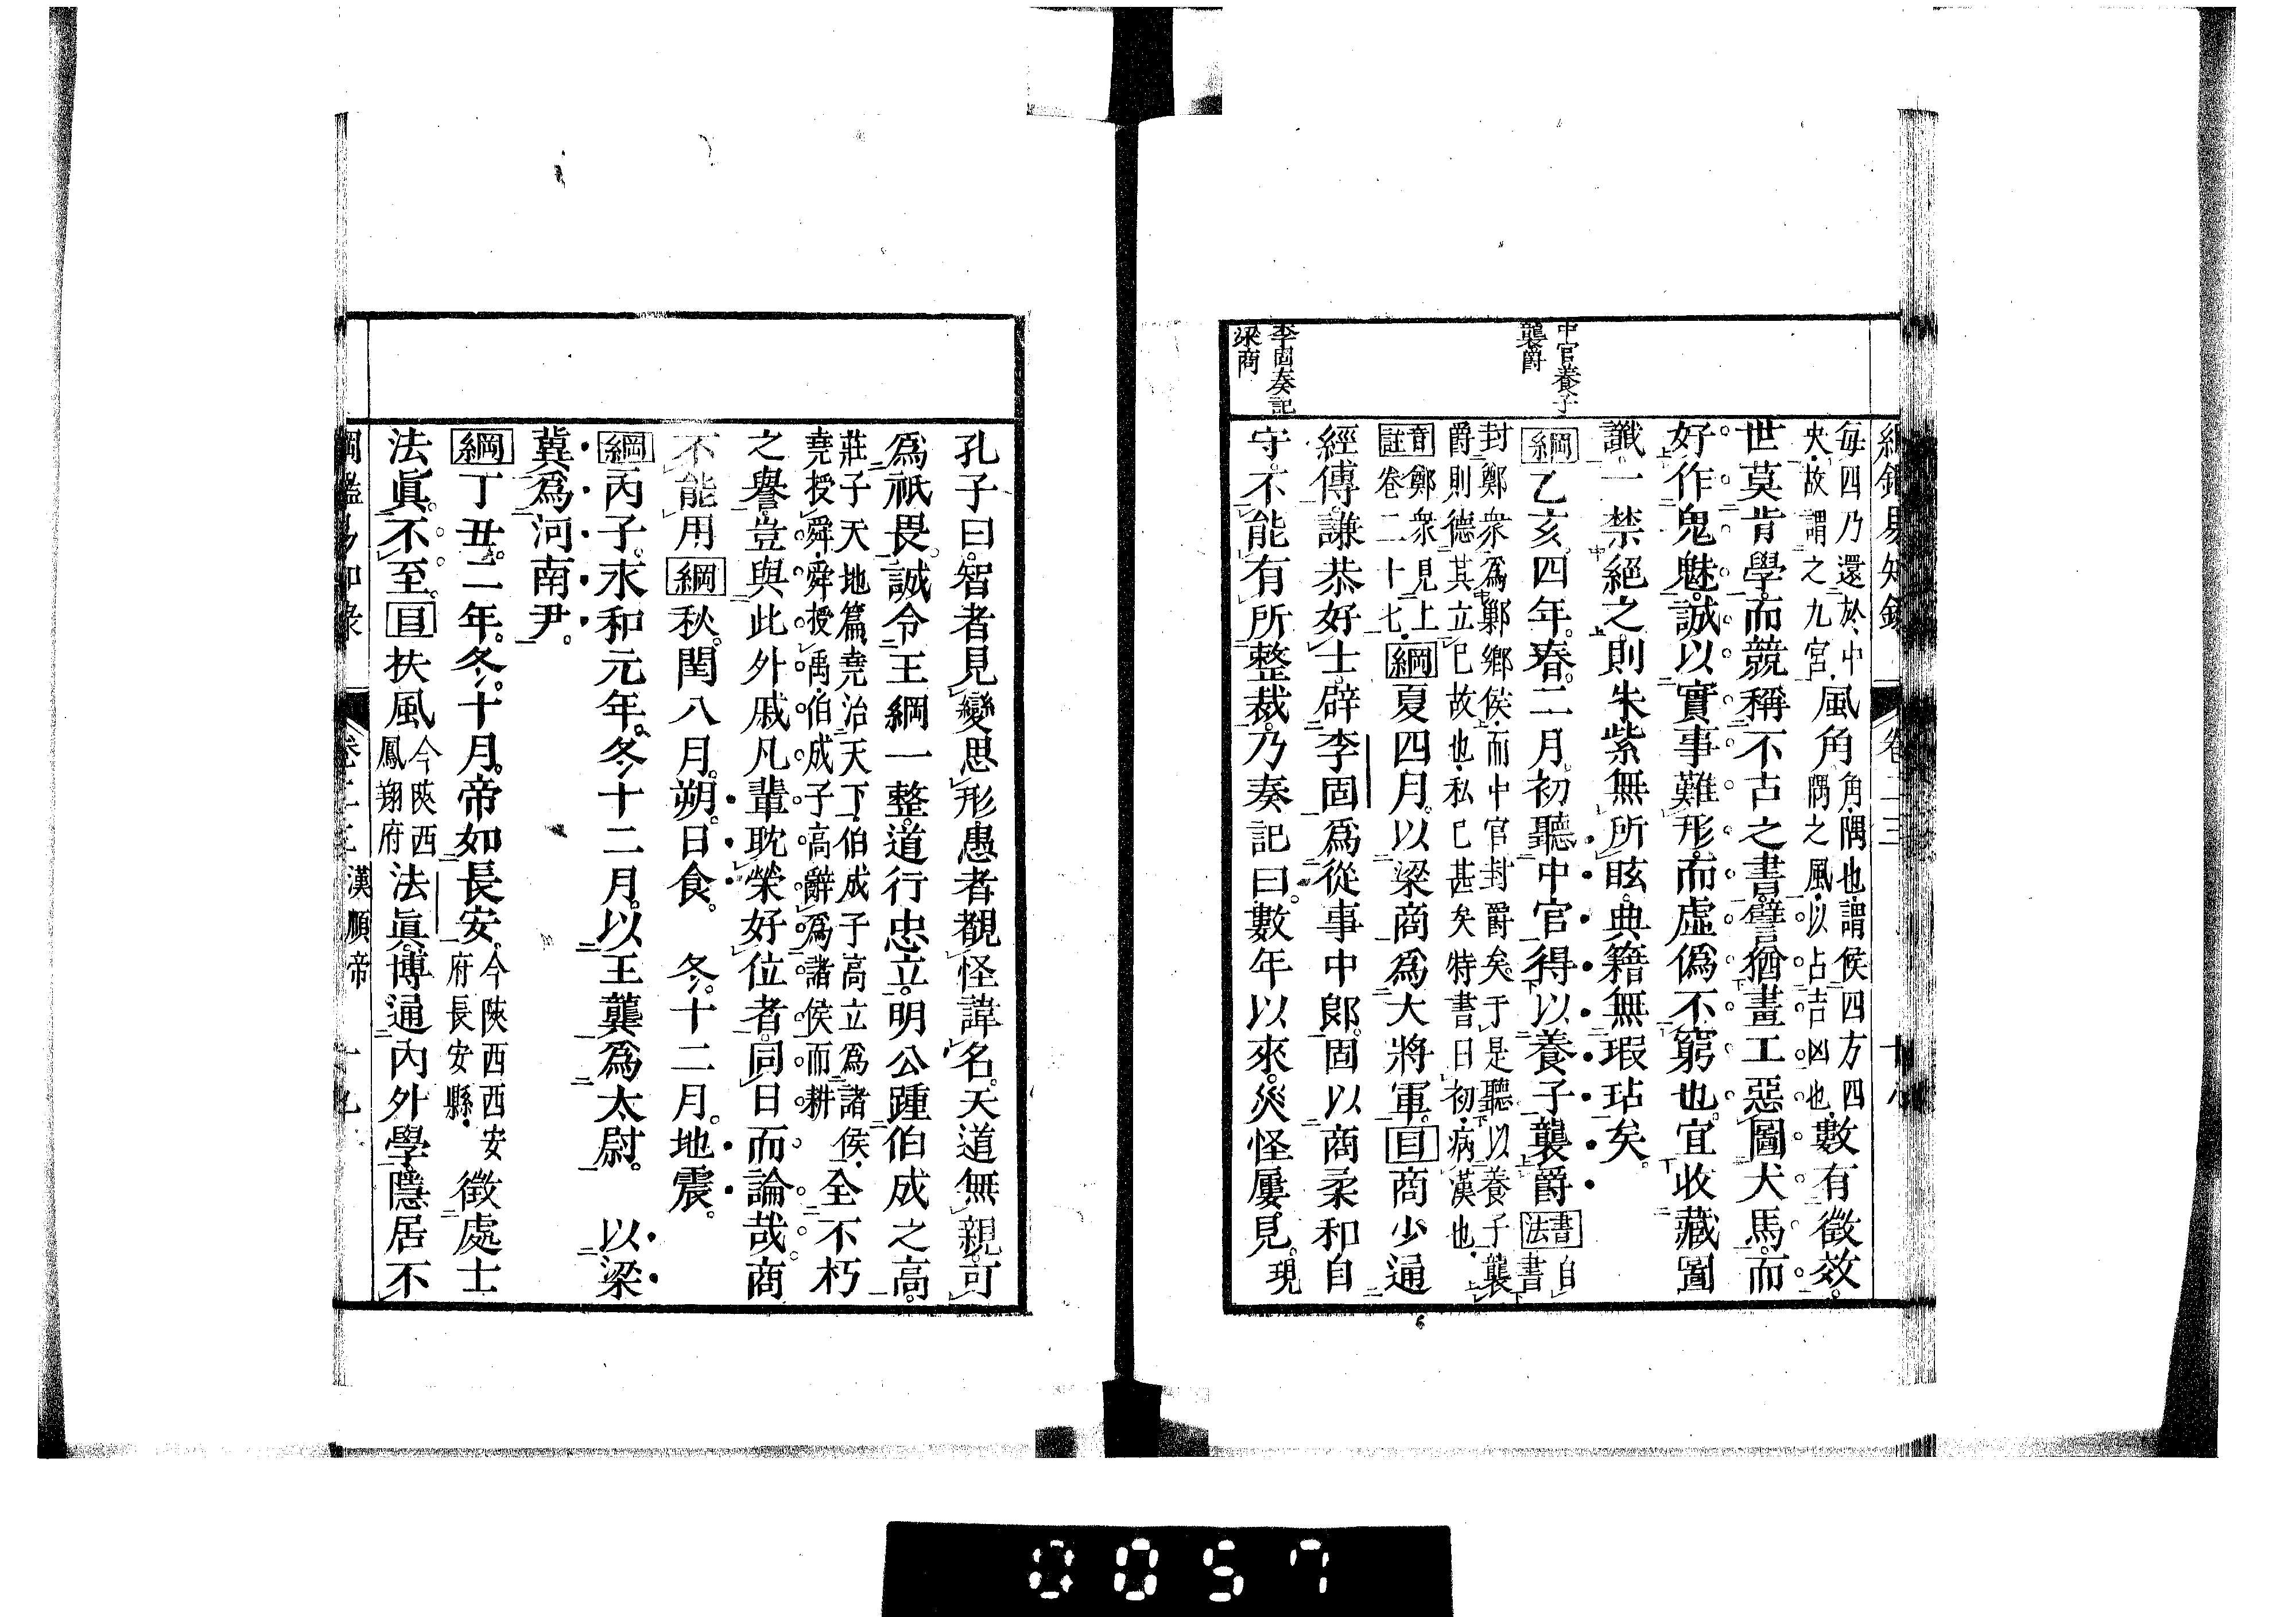 綱鑑易知錄 卷二三 十八
每四乃還於中
央故謂之九宮
風角
角隅也謂候四方四
隅之風以占吉凶也
數有徵效
世莫肯學而競稱不古之書譬猶畫工惡圖犬馬而
好作鬼魅誠以實事難形而虛僞不窮也宜收藏圖
讖一禁絕之則朱紫無所眩典籍無瑕玷矣
中官養子
襲爵
綱乙亥四年春二月初聽中官得以養子襲爵
書法自
書
封鄭衆爲鄛鄉侯而中官封爵矣于是聽以養子襲
爵則德其立已故也私已甚矣特書曰初病漢也
音註
鄭衆見上
卷二十七
綱夏四月以梁商爲大將軍目商少通
經傳謙恭好士辟李固爲從事中郞固以商柔和自
李固奏記
梁商
守不能有所整裁乃奏記曰數年以來災怪屢見現
孔子曰智者見變思形愚者覩怪諱名天道無親可
爲祇畏誠令王綱一整道行忠立明公踵伯成之高
莊子天地篇堯治天下伯成子高立爲諸侯
堯授舜舜授禹伯成子高辭爲諸侯而耕
全不朽
之譽豈與此外戚凡輩耽榮好位者同日而論哉商
不能用綱秋閏八月朔日食 冬十二月地震
綱丙子永和元年冬十二月以王龔爲太尉 以梁
冀爲河南尹
綱丁丑二年冬十月帝如長安
今陝西西安
府長安縣
徵處士
法眞不至目扶風
今陝西
鳳翔府
法眞博通內外學隱居不
綱鑑易知錄 卷二三 漢順帝 十九
0057